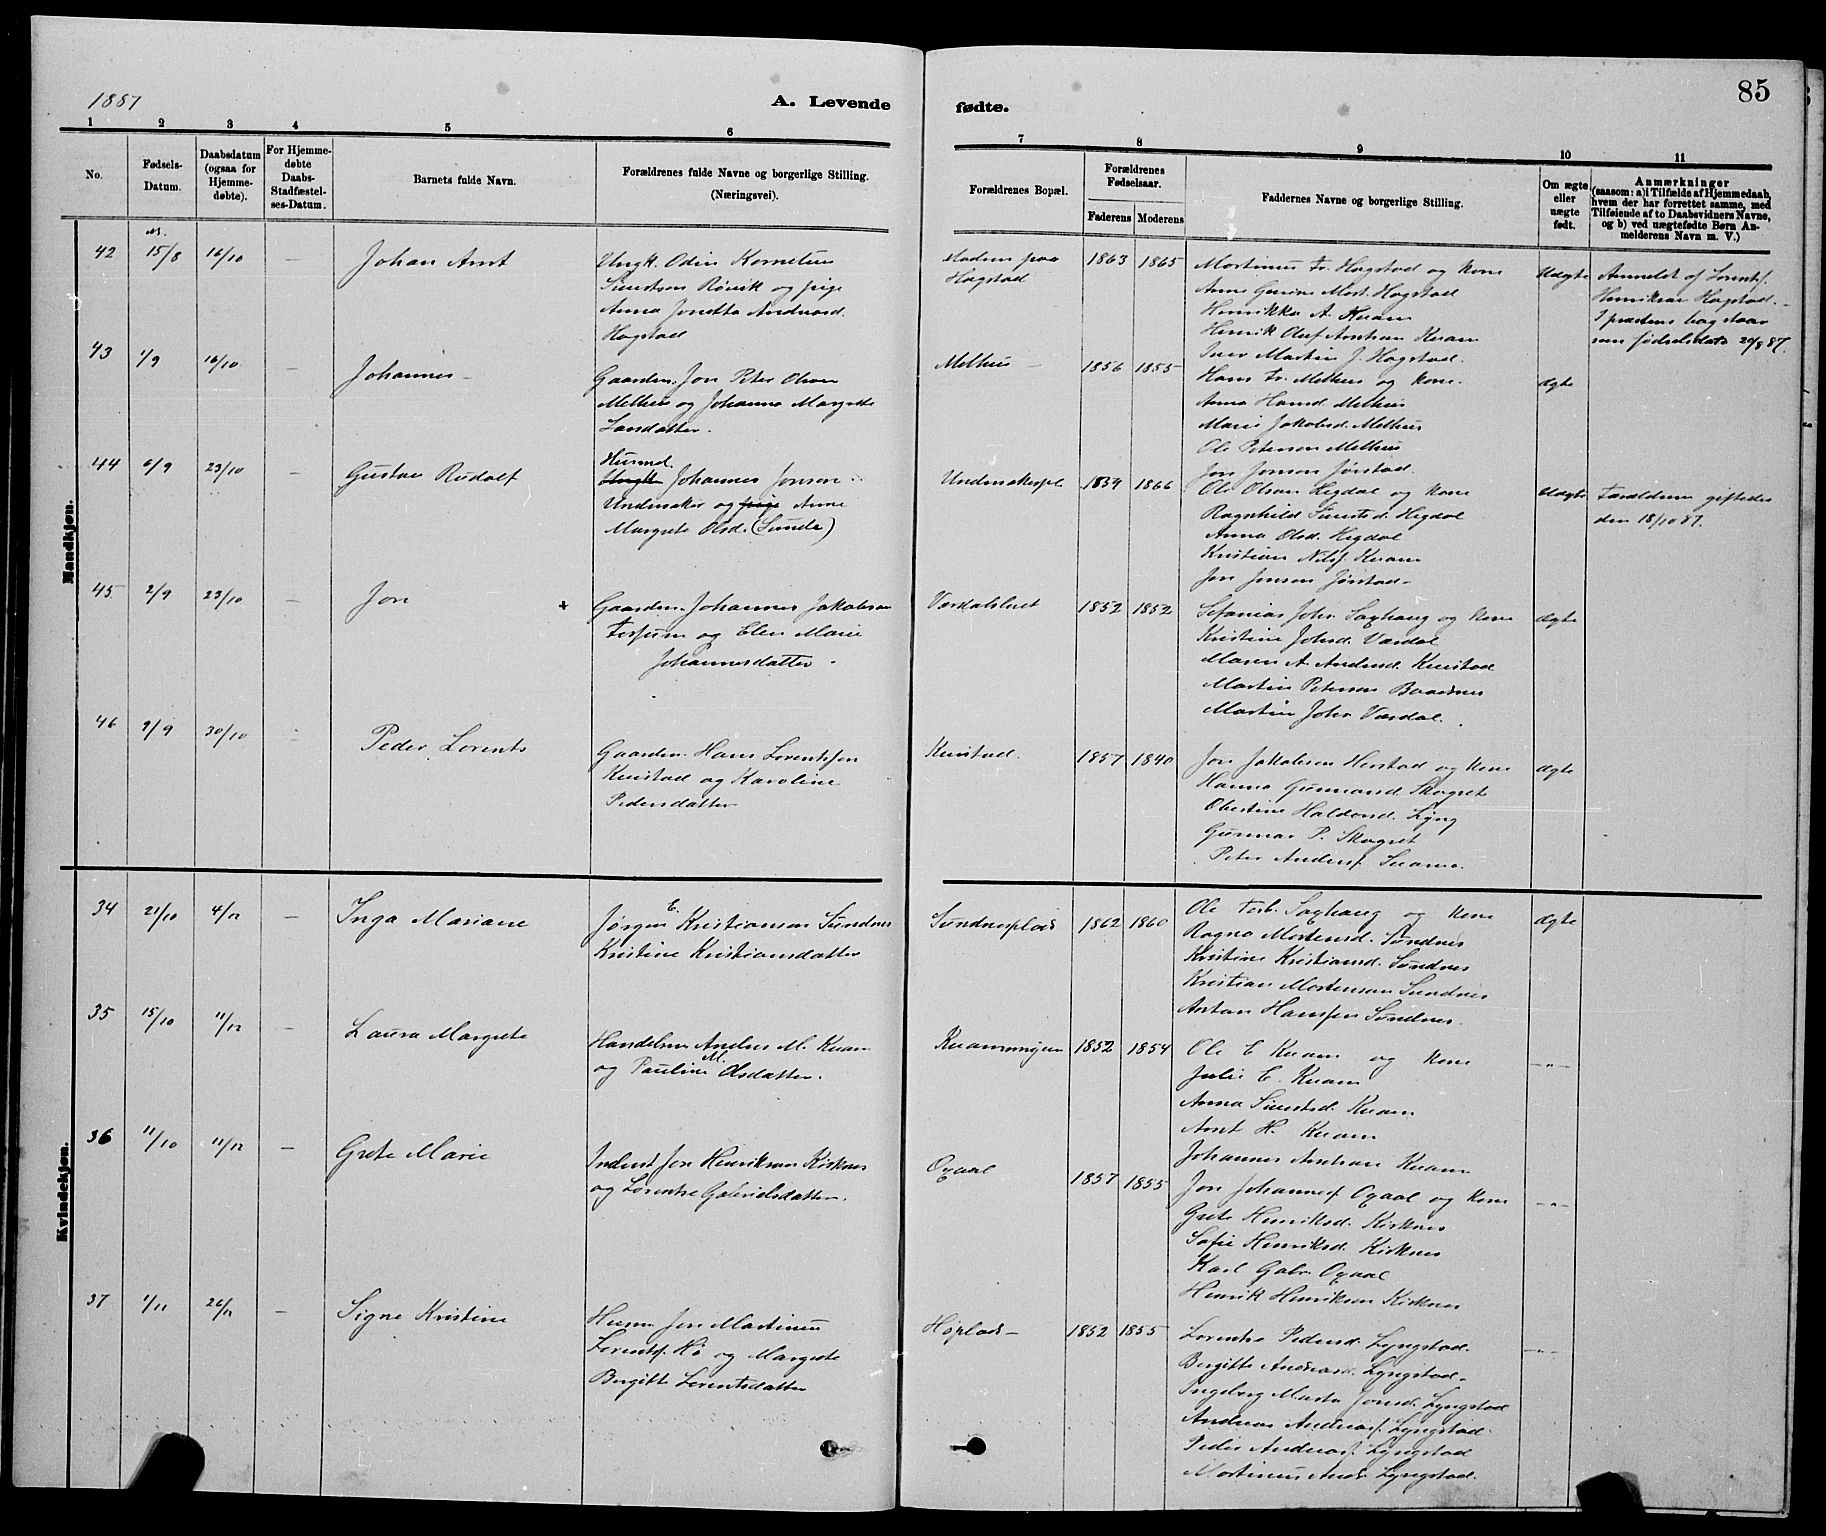 1887
A. Levende
fødte.
85
1
2
3
4
5
6
7
8
9
10
11
No.
Fødsels-
Datum.
Daabsdatum
(ogsaa for
Hjemme-
døbte).
For Hjemme-
døbte
Daabs-
Stadfæstel-
ses-Datum.
Barnets fulde Navn.
Forældrenes fulde Navne og borgerlige Stilling.
(Næringsvei).
Forældrenes Bopæl.
Forældrenes
Fødselsaar.
Faderens
Moderens
Faddernes Navne og borgerlige Stilling.
Om ægte
eller
uægte
født.
Anmærkninger
(saasom: a) i Tilfælde af Hjemmedaab,
hvem der har forrettet samme, med
Tilføiende af to Daabsvidners Navne,
og b) ved uægtefødte Børn An-
melderens Navn m. V.)
Mandkjøn.
42
15/8
16/10
–
Johan Arnt
Ungk. Odin Kornelius
Sivertsen Røvik og pige
Anna Jonetta Andreasd.
Hagstad
Moderen paa
Hagstad
1863
1865
Martinus Fr. Hagstad og kone
Anne Gurine Mort. Hagstad
Henrikka A. Kvam
Henrik Oluf Arntsen Kvam
Iver Martin J. Hagstad.
Uægte
Anmeldt af Lorents
Henriksen Hagstad. –
I prestens bog staar
som fødselsdato 20/8 87.
43
1/9
16/10
–
Johannes –
Gaardm. Jon Peter Olsen
Melhus og Johanna Margrete
Larsdatter.
Melhus –
1856
1855
Hans Fr. Melhus og kone.
Anna Hansd. Melhus
Marie Jakobsd. Melhus
Ole Petersen Melhus
Jon Jonsen Jørstad.
ægte
44
6/9
23/10
–
Gustav Rudolf
Husmd.
Ungk. Johannes Jonsen
Undersaker og pige Anne
Margrete Olsd. (Sunde)
Undersakerpl.
1834
1866
Ole Olsen Hegdal og kone
Ragnhild Sivertsd. Hegdal
Anna Olsd. Hegdal
Kristian Nilsf. Kvam
Jon Jonsen Jørstad –
Uægte
Forældrene giftedes
den 18/10 87.
45.
2/9
23/10
–
Jon
+
Gaardm. Johannes Jakobsen
Forfum og Elen Marie
Johannesdatter.
Værdalslvet
1852
1852
Sefanias Johs. Saxhaug og kone
Kristine Johsd. Værdal
Maren A. Andersd. Kvistad
Martin Petersen Baadsnes
Martin Johs. Værdal.
ægte
46
9/9
30/10
–
Peder Lorents
Gaardm. Hans Lorentsen
Kvistad og Karoline
Pedersdatter
Kvistad.
1857
1840
Jon Jakobsen Hvistad og kone
Hanna Gunnarsd. Skogset
Oberstine Haldorsd. Lyng
Gunnar P. Skogset
Peter Andersf. Snarmo.
ægte
Kvindekjøn.
34
21/10
4/12
–
Inga Mariane
Jørgen E. Kristiansen Sundnes
Kristine Kristiansdatter
Sundnesplads
1862
1860
Ole Torb. Saxhaug og kone
Ragna Mortensd. Sundnes
Kristine Kristiansd. Sundnes
Kristian Mortensen Sundnes
Anton Hansen Sundnes.
ægte
35
15/10
11/12
–
Laura Margrete
Handelsm. Anders M. Kvam
og Pauline M. Olsdatter.
1852
1854
Ole E. Kvam og kone
Julie E. Kvam
Anna Sivertsd. Kvam
Arnt H. Kvam
Johannes Arntsen Kvam
–"–
36
11/10
11/12
–
Grete Marie
Inderst Jon Henriksen Kirknes
og Lorentse Gabrielsdatter.
Oxaal
1857
1855
Jon Johannesf. Oxaal og kone
Grete Henriksd. Kirknes
Sofie Henriksd. Kirknes
Karl Gabr. Oxaal
Henrik Henriksen Kirknes
–"–
37
1/11
26/12
–
Signe Kristine
Husm. Jon Martinus
Lorentsf. Hø og Margrete
Bergitte Lorentsdatter
Høplads –
1852
1855
Lorentse Pedersd. Lyngstad.
Bergitte Andreasd. Lyngstad.
Ingeborg Marta Jonsd. Lyngstad
Andreas Andreasf. Lyngstad.
Peder Andreasf. Lyngstad
Martinus Andr. Lyngstad.
–"–